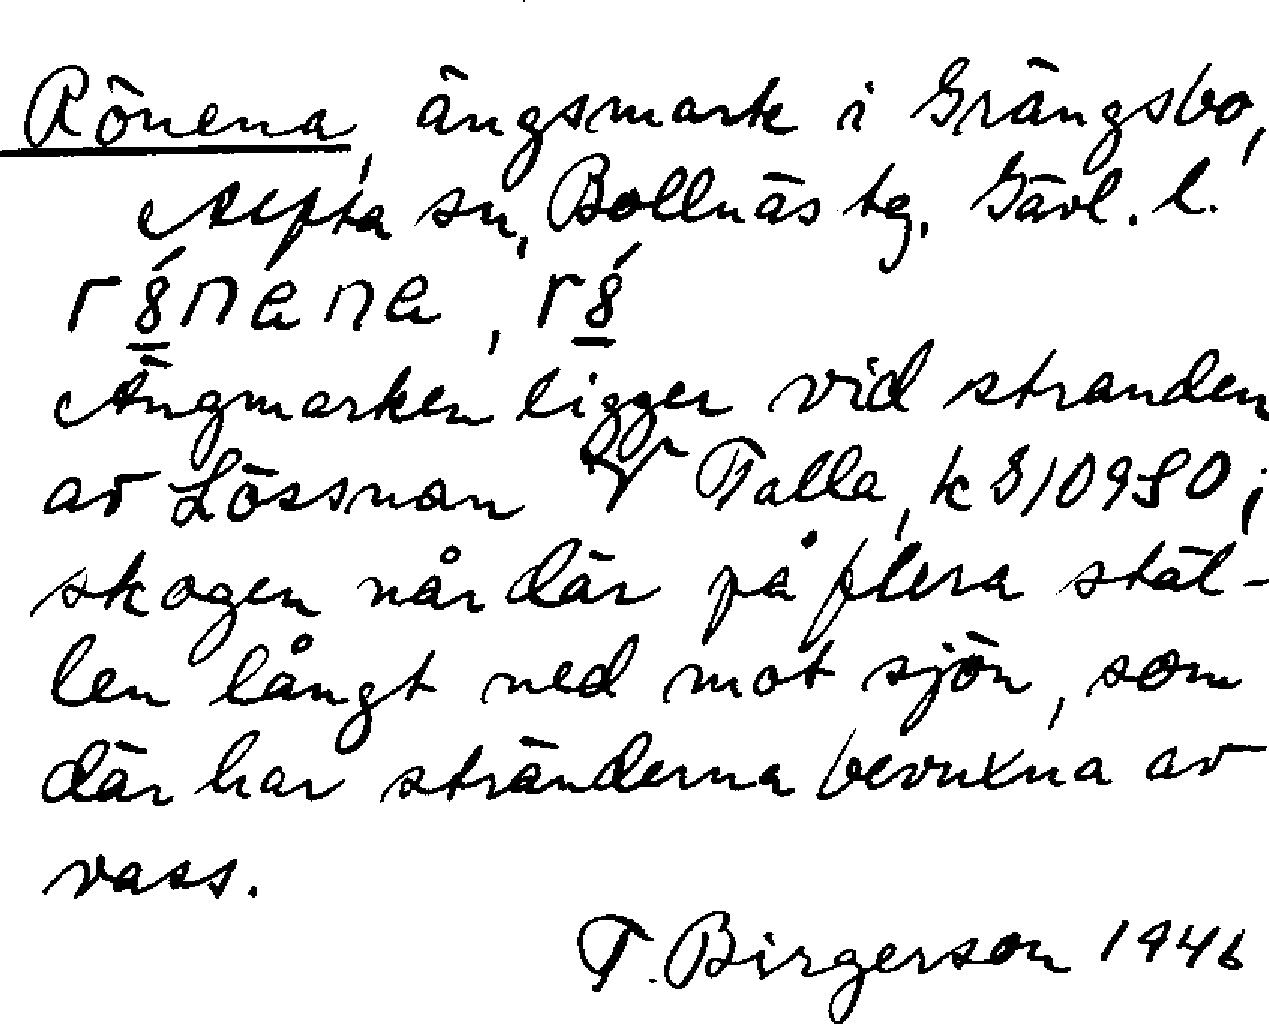 Rönena, ängsmark i Grängsbo,
Alfta sn, Bollnäs tg. Gävl. l.
Ängmarken ligger vid stranden
av Lössnan V Falla, k G10980;
skogen når där på flera stäl-
len långt ned mot sjön, som
där har stränderna bevuxna av
vass.
T. Birgerson 1946